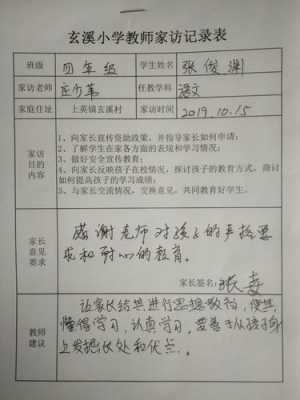 玄溪小学教师家访记录表
班级 四年级 学生姓名 张俊渊
家访老师 庄少革 任教学科 语文
家庭住址 上英镇玄溪村 家访时间 2019.10.15
家访目的内容
1、向家长宣传资助政策，并指导家长如何申请；
2、了解学生在家各方面的表现和学习情况；
3、做好安全宣传教育；
4、向家长反映孩子在校情况，探讨孩子的教育方式，商讨
如何提高孩子的学习成绩；
5、与家长交流情况，交换意见，共同教育好学生。
家长意见要求
感谢老师对孩子的严格要
求和耐心的教育。
家长签名：张
教师建议
让家长结其进行思想教育，使其
懂得学习，认真学习，要善于从孩子身
上发掘长处和优点。